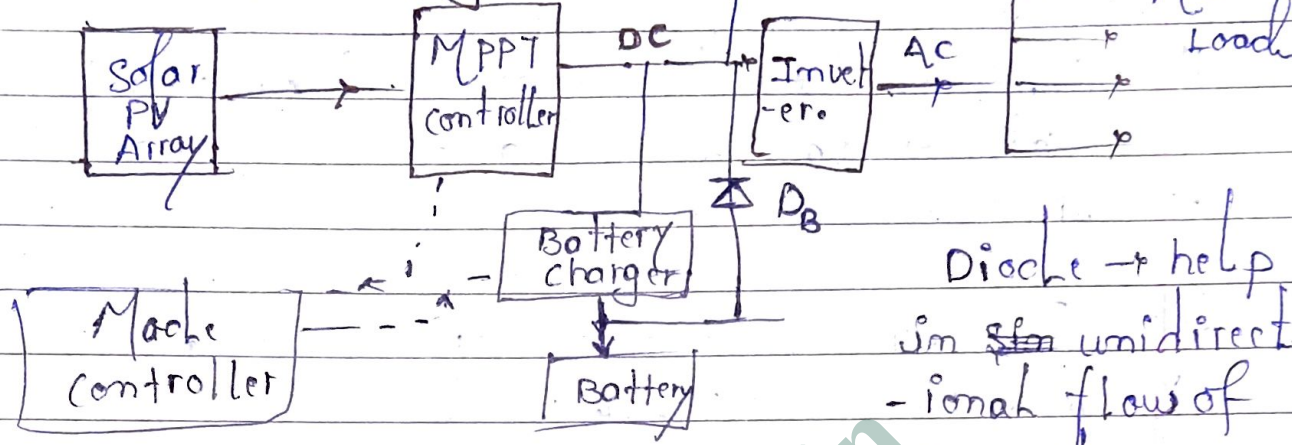 Solar
PV
Array
MPPT
controller
DC
Invet
-er.
AC
Load
D_B
Battery
charger
Mode
controller
Battery
Diode → help
in unidirect
-ional flow of